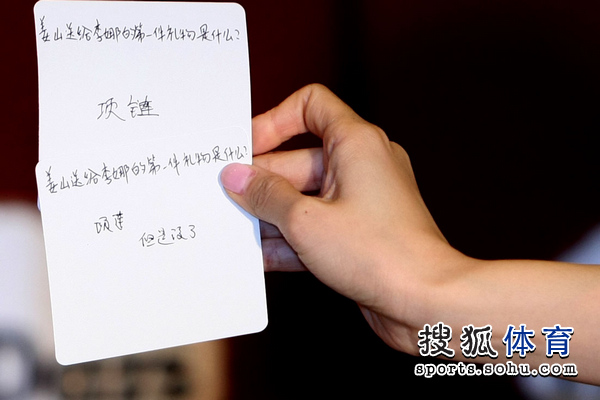 姜山送给李娜的第一件礼物是什么?
项链
姜山送给李娜的第一件礼物是什么?
项链
但是没了
搜狐体育
sports.sohu.com